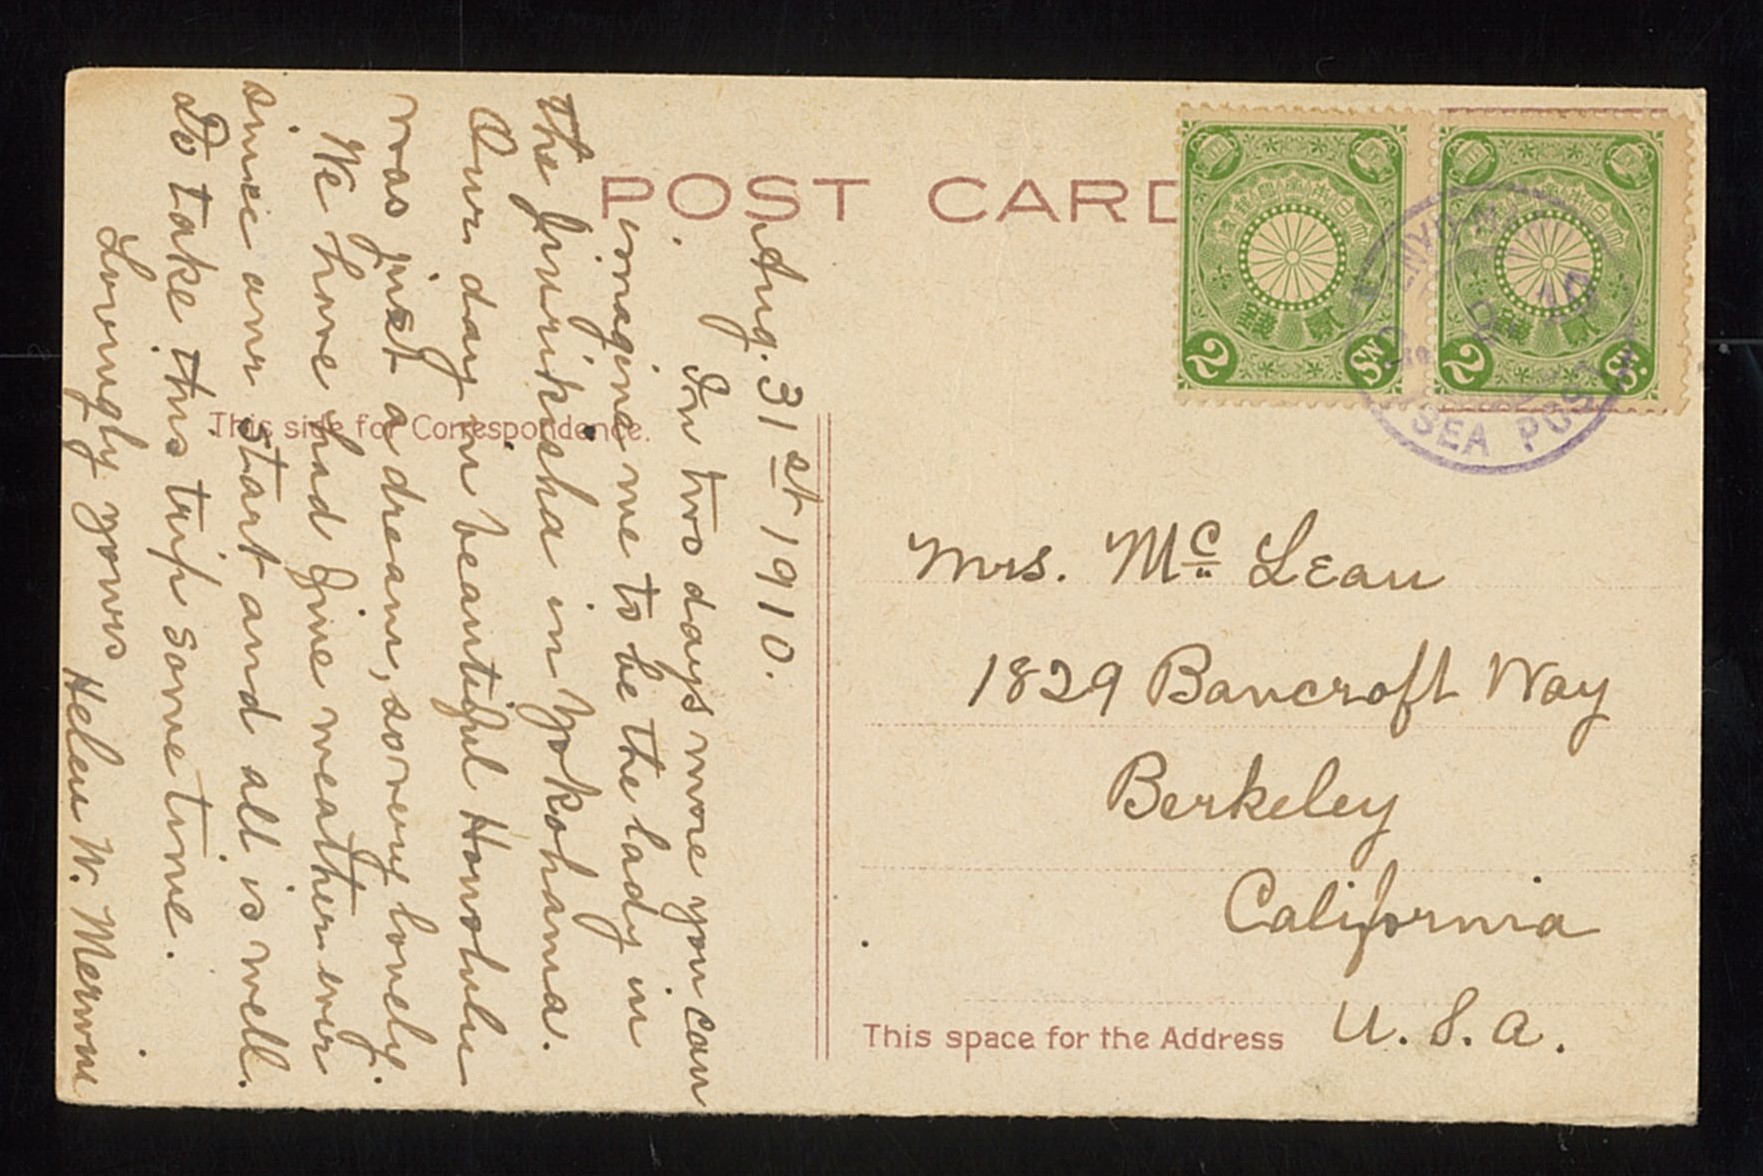 POST CARD
Aug. 31st 1910.
In two days more you can
imagine me to be the lady in
the jinrikisha in Yokohama.
Our day in beautiful Honolulu
was just a dream, so very lovely.
We have had fine weather ever
since our start and all is well.
Do take this trip some time.
Lovingly yours Helen W. Merwin
This side for Correspondence.
2 Sn.
2 Sn.
SEA POST
Mrs. Mc Lean
1829 Bancroft Way
Berkeley
California
U. S. A.
This space for the Address